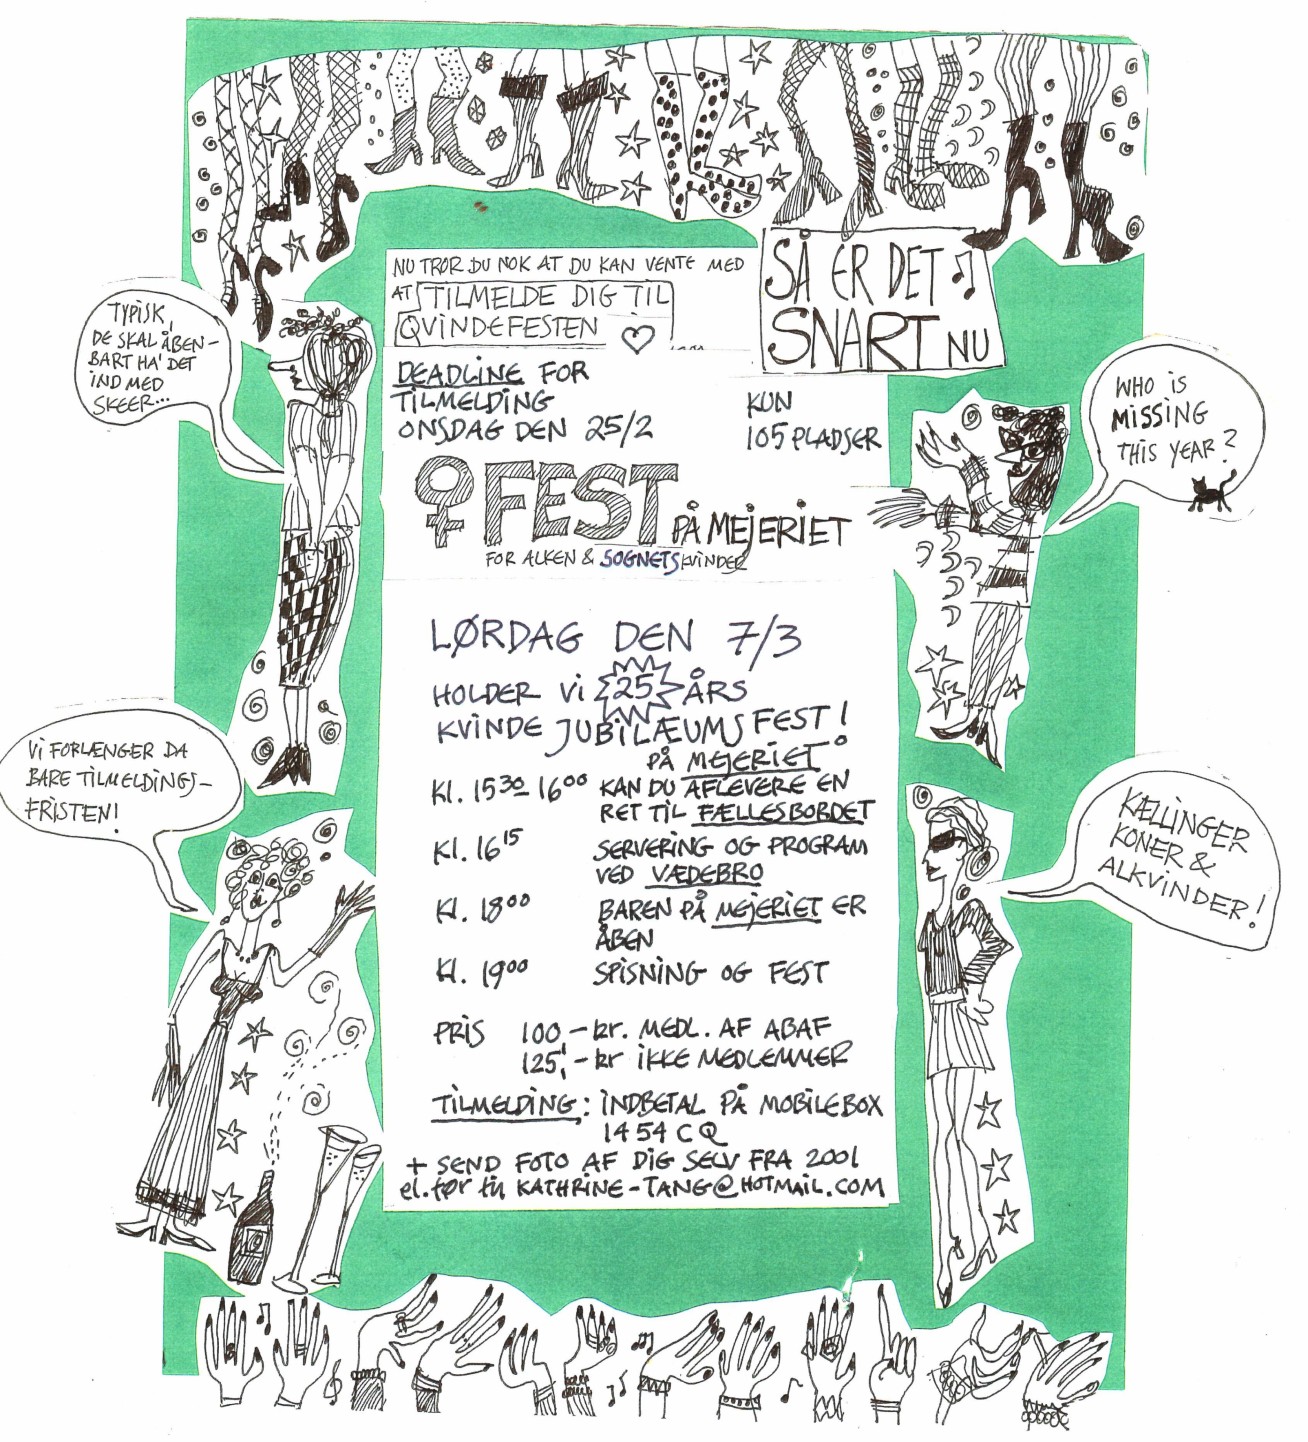 NU TROR DU NOK AT DU KAN VENTE MED
AT TILMELDE DIG TIL
QVINDEFESTEN
SÅ ER DET
SNART NU
TYPISK,
DE SKAL ÅBEN-
BART HA' DET
IND MED
SKEER...
DEADLINE FOR
TILMELDING
ONSDAG DEN 25/2
KUN
105 PLADSER
WHO IS
MISSING
THIS YEAR?
♀ FEST PÅ MEJERIET
FOR ALKEN & SOGNETS KVINDER
LØRDAG DEN 7/3
HOLDER VI 25 ÅRS
KVINDE JUBILÆUMSFEST!
PÅ MEJERIET
VI FORLÆNGER DA
BARE TILMELDINGS-
FRISTEN!
Kl. 1530-1600 KAN DU AFLEVERE EN
RET TIL FÆLLESBORDET
Kl. 1615 SERVERING OG PROGRAM
VED VÆDEBRO
Kl. 1800 BAREN PÅ MEJERIET ER
ÅBEN
Kl. 1900 SPISNING OG FEST
KÆLLINGER
KONER &
ALKVINDER!
PRIS 100,- kr. MEDL. AF ABAF
125,- kr IKKE MEDLEMMER
TILMELDING: INDBETAL PÅ MOBILEBOX
1454CQ
+ SEND FOTO AF DIG SELV FRA 2001
el. før til KATHRINE-TANG@HOTMAIL.COM